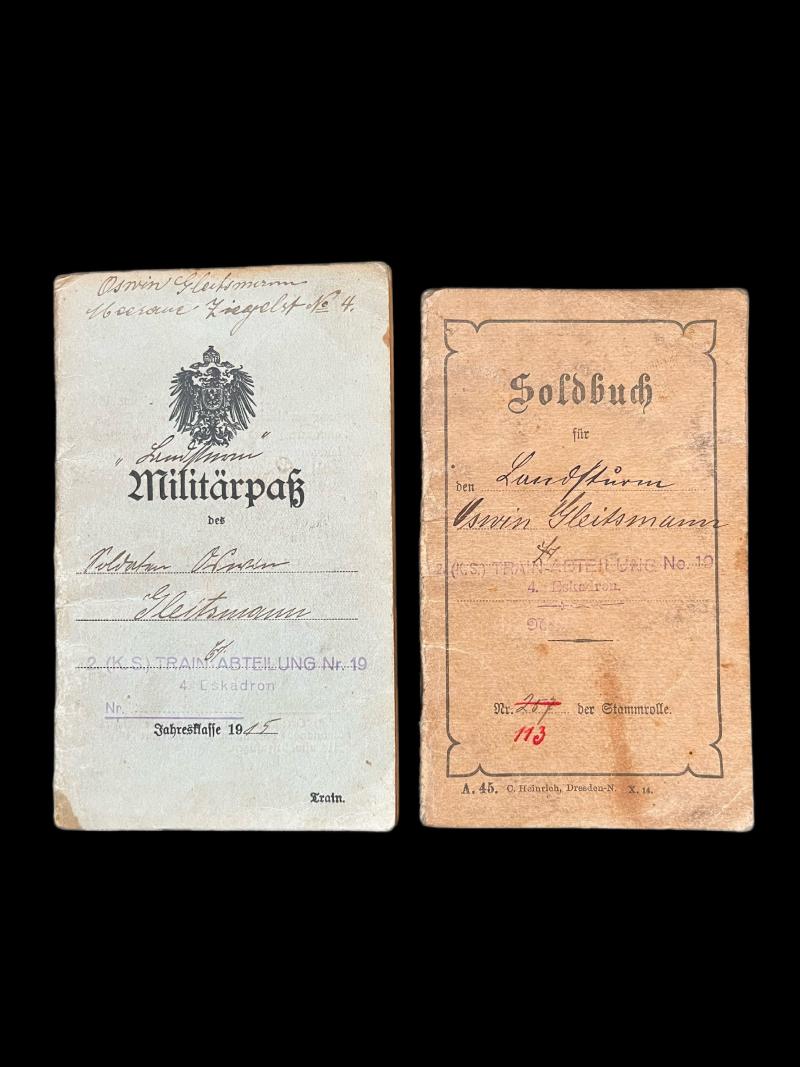 Oswin Gleitsmann
Meerane Ziegelst No 4.
"Landsturm"
Militärpaß
des
Soldaten Oswin
Gleitsmann
2. (K.S.) TRAIN-ABTEILUNG Nr. 19
4. Eskadron
Nr.
Jahresklasse 1915
Train.
Soldbuch
für
den Landsturm
Oswin Gleitsmann
2. (K.S.) TRAIN-ABTEILUNG No. 19
4. Eskadron.
Nr. 257 der Stammrolle.
113
A. 45. C. Heinrich, Dresden-N. X. 14.